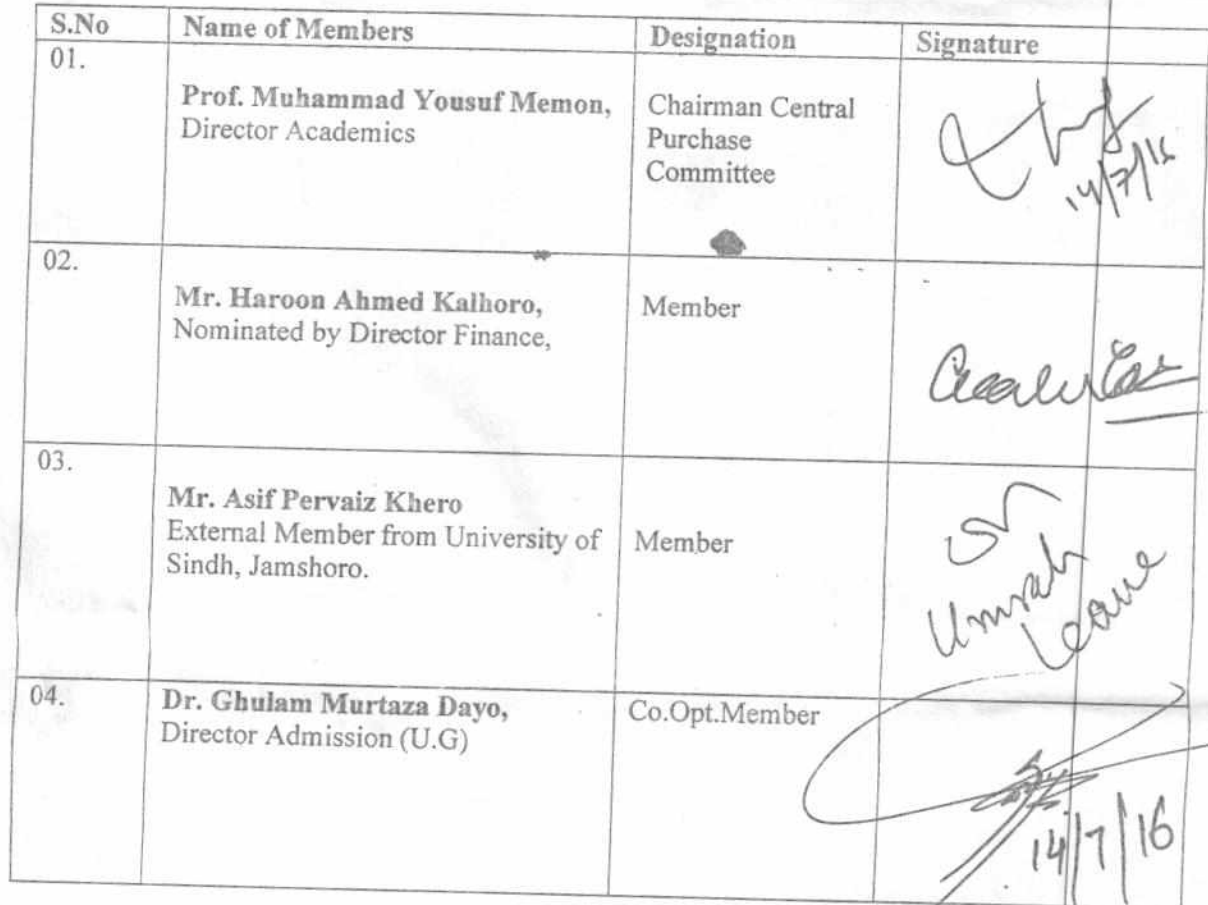 S.No Name of Members Designation Signature
01.
Prof. Muhammad Yousuf Memon,
Director Academics
Chairman Central
Purchase
Committee
14/7/16
02.
Mr. Haroon Ahmed Kalhoro,
Nominated by Director Finance,
Member
03.
Mr. Asif Pervaiz Khero
External Member from University of
Sindh, Jamshoro.
Member
On
Umrah
Leave
04.
Dr. Ghulam Murtaza Dayo,
Director Admission (U.G)
Co.Opt.Member
14/7/16